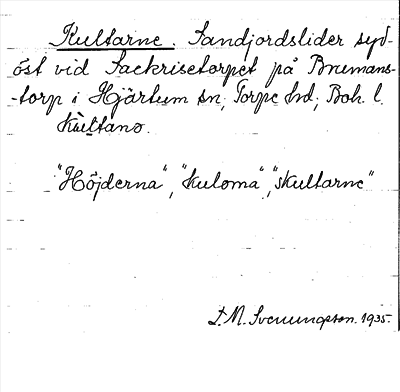 Kultarne. Sandjordslider syd-
öst vid Sackrisetorpet på Brumans-
-torp i Hjärtum sn, Torpe hd, Boh. l.
kùltano.
"Höjderna", "kuloma", "skultarne"
D. M. Svenungsson. 1935.